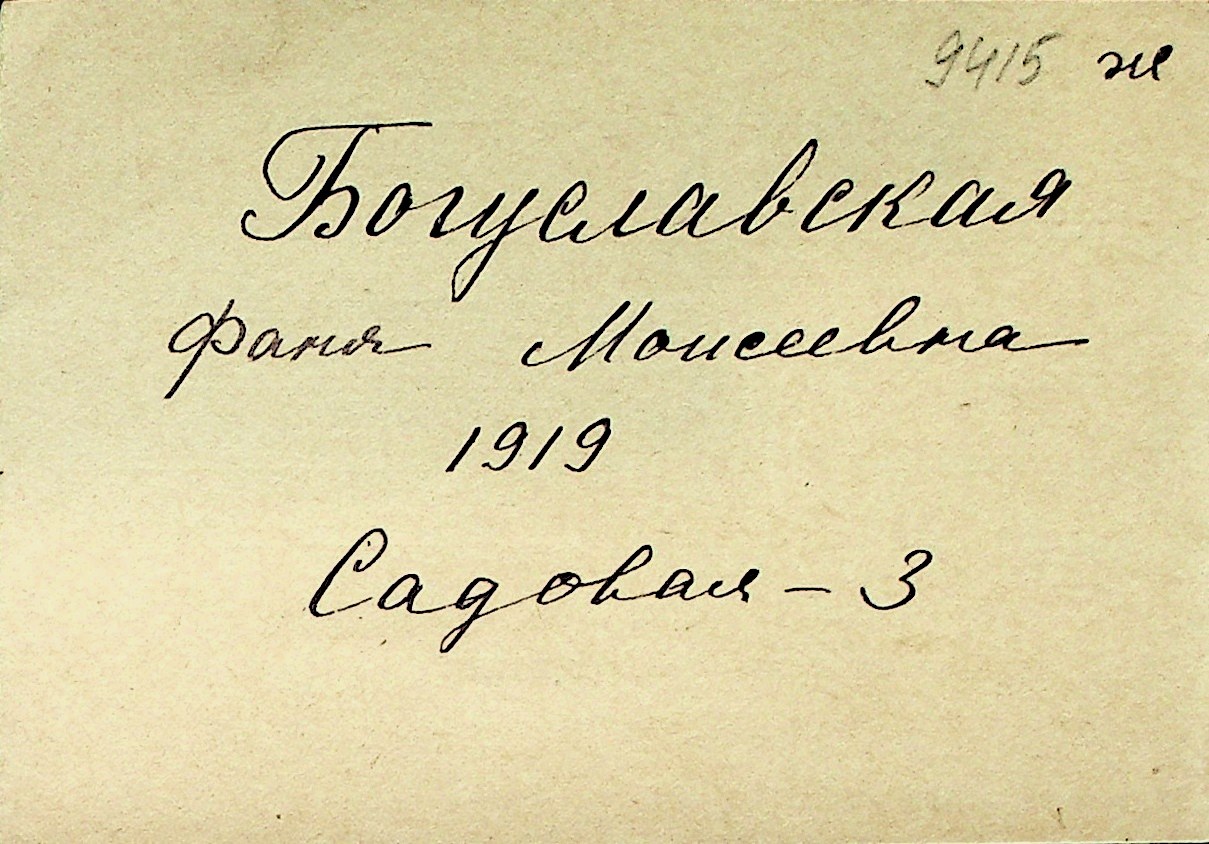 9415 ж
Богуславская
Фаня Моисеевна
1919
Садовая - 3